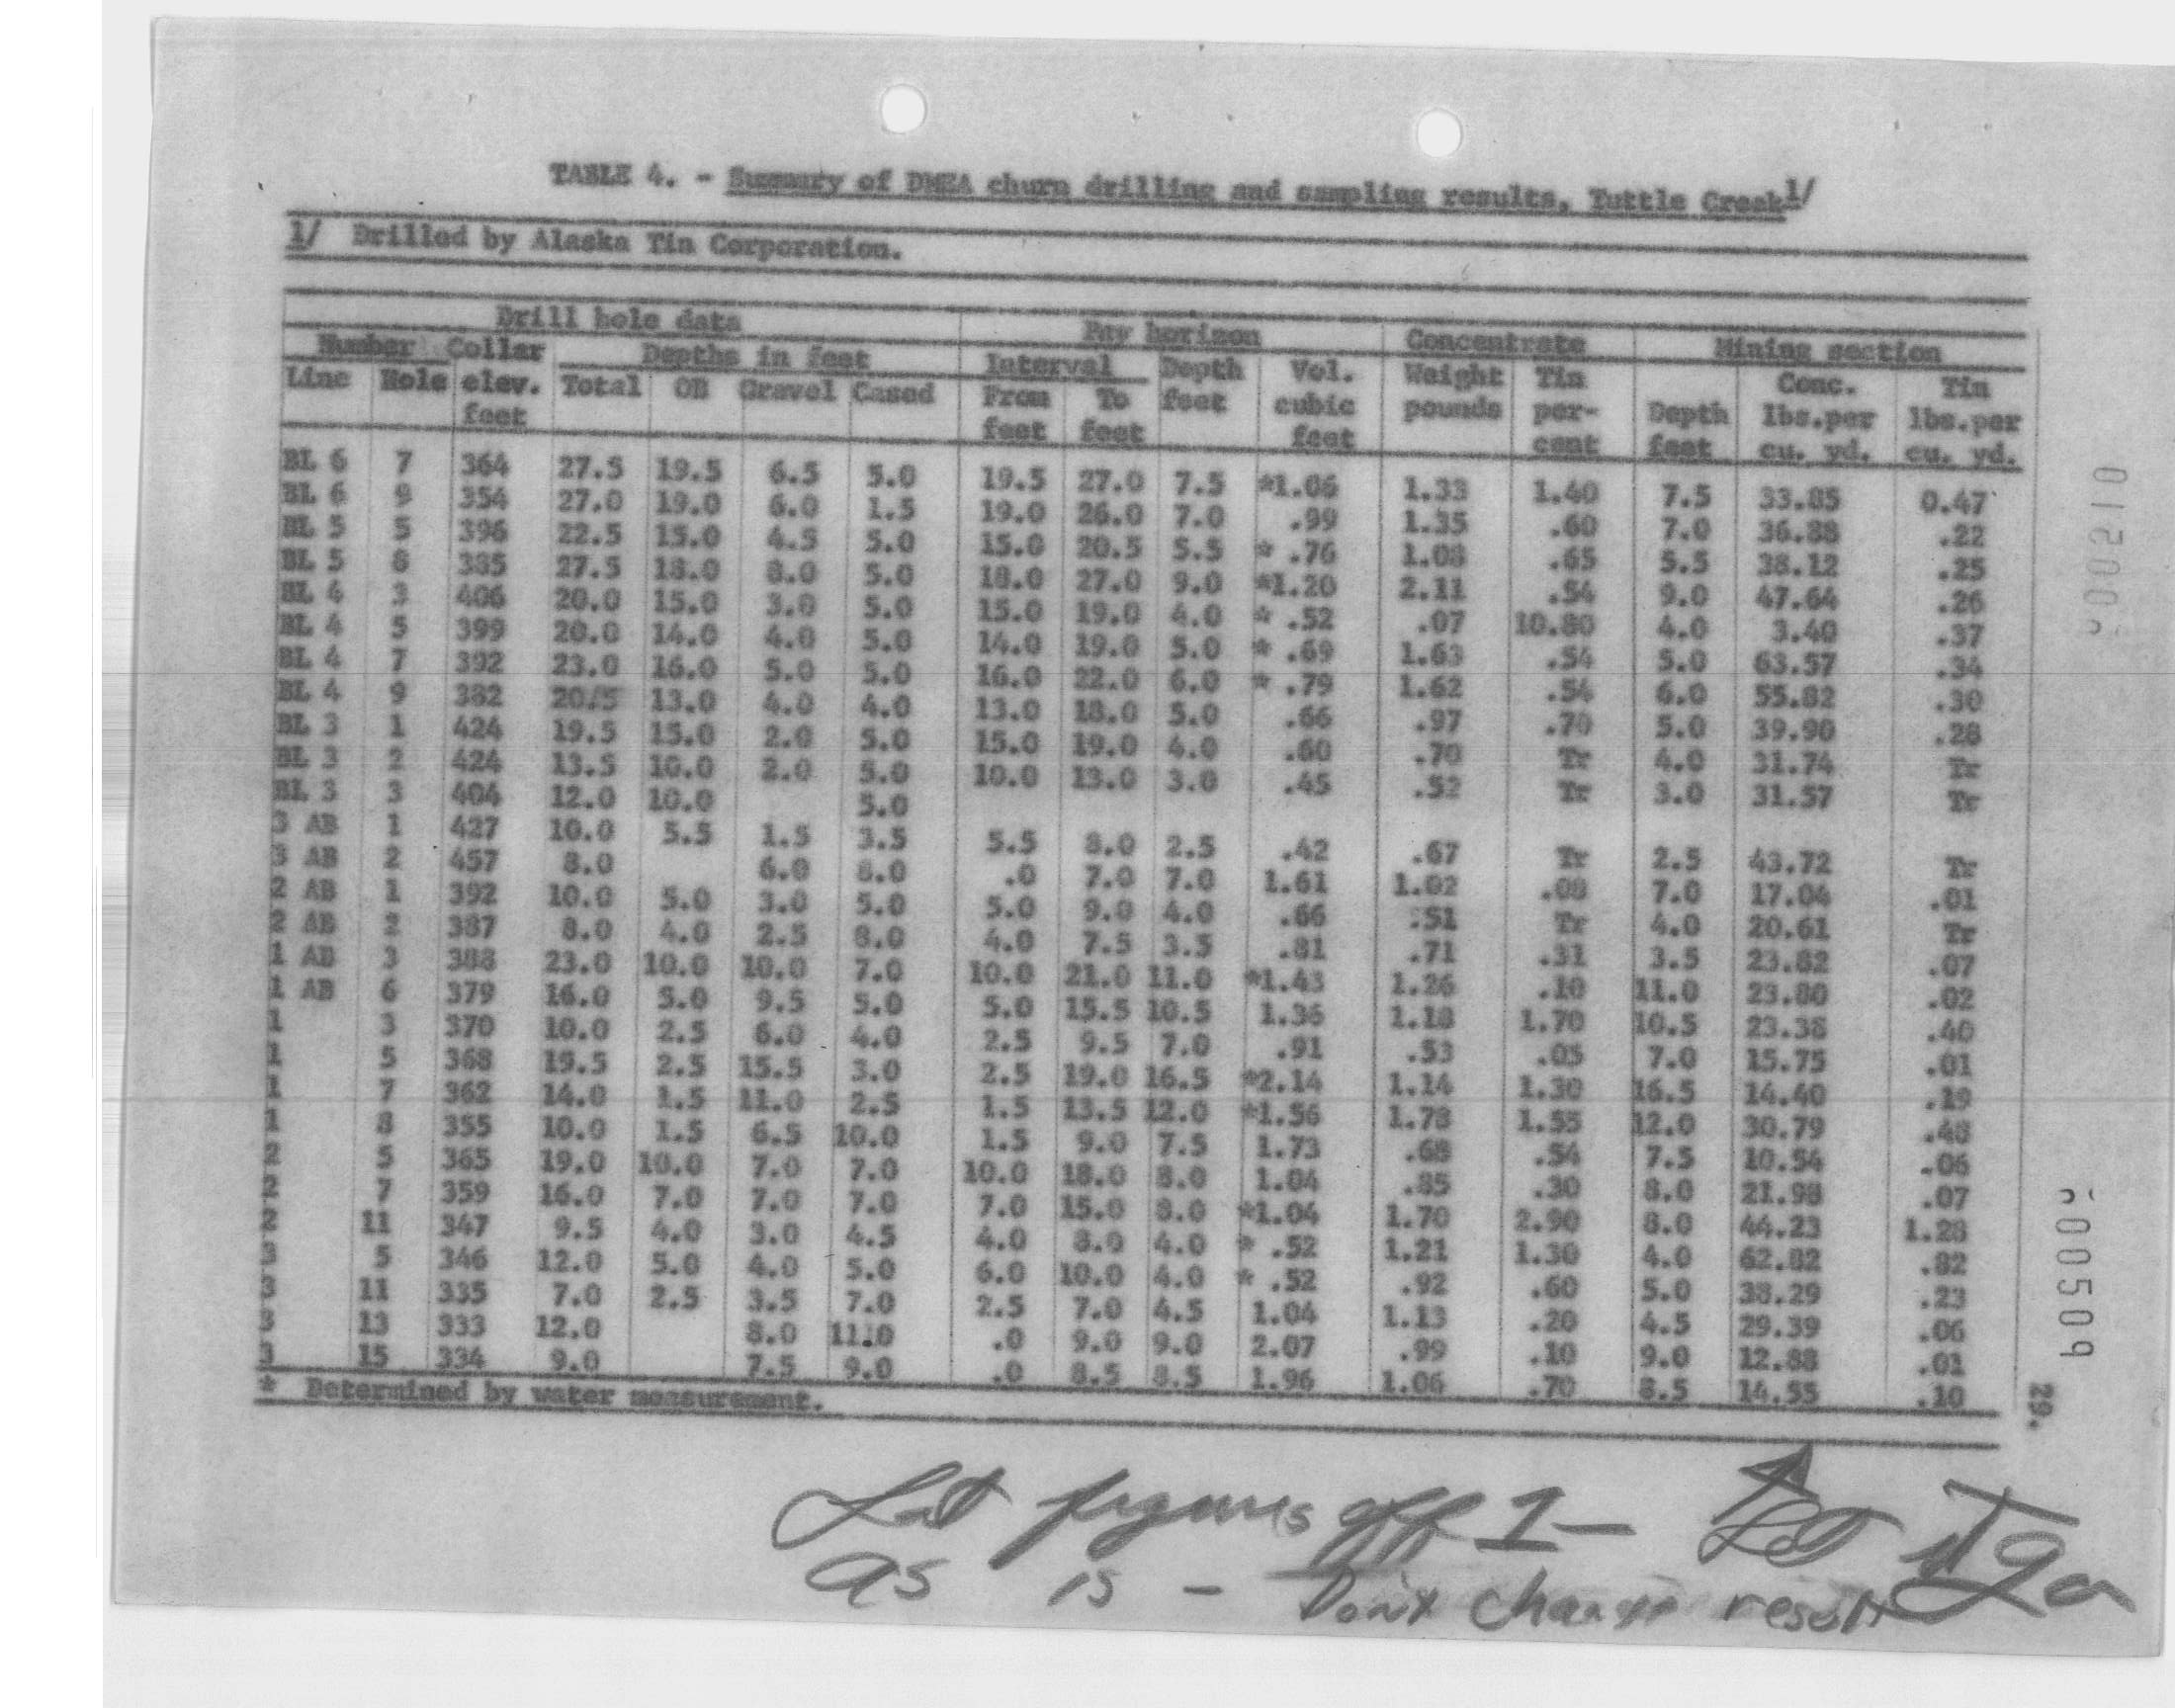 TABLE 4. - Summary of DMEA churn drilling and sampling results, Tuttle Creek 1/
1/ Drilled by Alaska Tin Corporation.
Drill hole data Pay horizon Concentrate Mining section
Number Collar Depths in feet Interval Depth Vol. Weight Tin Conc. Tin
Line Hole elev. Total OB Gravel Cased From To feet cubic pounds per- Depth lbs.per lbs.per
feet feet feet feet cent feet cu. yd. cu. yd.
BL 6 7 364 27.5 19.5 6.5 5.0 19.5 27.0 7.5 *1.06 1.33 1.40 7.5 33.85 0.47
BL 6 9 354 27.0 19.0 6.0 1.5 19.0 26.0 7.0 .99 1.35 .60 7.0 36.88 .22
BL 5 5 396 22.5 15.0 4.5 5.0 15.0 20.5 5.5 * .76 1.08 .65 5.5 38.12 .25
BL 5 8 385 27.5 18.0 8.0 5.0 18.0 27.0 9.0 *1.20 2.11 .54 9.0 47.64 .26
BL 4 3 406 20.0 15.0 3.0 5.0 15.0 19.0 4.0 * .52 .07 10.80 4.0 3.40 .37
BL 4 5 399 20.0 14.0 4.0 5.0 14.0 19.0 5.0 * .69 1.63 .54 5.0 63.57 .34
BL 4 7 392 23.0 16.0 5.0 5.0 16.0 22.0 6.0 * .79 1.62 .54 6.0 55.82 .30
BL 4 9 382 20.5 13.0 4.0 4.0 13.0 18.0 5.0 .66 .97 .70 5.0 39.90 .28
BL 3 1 424 19.5 15.0 2.0 5.0 15.0 19.0 4.0 .60 .70 Tr 4.0 31.74 Tr
BL 3 2 424 13.5 10.0 2.0 5.0 10.0 13.0 3.0 .45 .52 Tr 3.0 31.57 Tr
BL 3 3 404 12.0 10.0 5.0
3 AB 1 427 10.0 5.5 1.5 3.5 5.5 8.0 2.5 .42 .67 Tr 2.5 43.72 Tr
3 AB 2 457 8.0 6.0 8.0 .0 7.0 7.0 1.61 1.02 .08 7.0 17.04 .01
2 AB 1 392 10.0 5.0 3.0 5.0 5.0 9.0 4.0 .66 .51 Tr 4.0 20.61 Tr
2 AB 2 387 8.0 4.0 2.5 8.0 4.0 7.5 3.5 .81 .71 .31 3.5 23.82 .07
1 AB 3 388 23.0 10.0 10.0 7.0 10.0 21.0 11.0 *1.43 1.26 .10 11.0 23.80 .02
1 AB 6 379 16.0 5.0 9.5 5.0 5.0 15.5 10.5 1.36 1.18 1.70 10.5 23.38 .40
1 3 370 10.0 2.5 6.0 4.0 2.5 9.5 7.0 .91 .53 .05 7.0 15.75 .01
1 5 368 19.5 2.5 15.5 3.0 2.5 19.0 16.5 *2.14 1.14 1.30 16.5 14.40 .19
1 7 362 14.0 1.5 11.0 2.5 1.5 13.5 12.0 *1.56 1.78 1.55 12.0 30.79 .48
1 8 355 10.0 1.5 6.5 10.0 1.5 9.0 7.5 1.73 .68 .54 7.5 10.54 .06
2 5 365 19.0 10.0 7.0 7.0 10.0 18.0 8.0 1.04 .85 .30 8.0 21.98 .07
2 7 359 16.0 7.0 7.0 7.0 7.0 15.0 8.0 *1.04 1.70 2.90 8.0 44.23 1.28
2 11 347 9.5 4.0 3.0 4.5 4.0 8.0 4.0 * .52 1.21 1.30 4.0 62.82 .82
3 5 346 12.0 5.0 4.0 5.0 6.0 10.0 4.0 * .52 .92 .60 5.0 38.29 .23
3 11 335 7.0 2.5 3.5 7.0 2.5 7.0 4.5 1.04 1.13 .20 4.5 29.39 .06
3 13 333 12.0 8.0 11.0 .0 9.0 9.0 2.07 .99 .10 9.0 12.88 .01
3 15 334 9.0 7.5 9.0 .0 8.5 8.5 1.96 1.06 .70 8.5 14.55 .10
* Determined by water measurement.
29.
5005509
figures off 1 — Let it go
as is - Don't change result